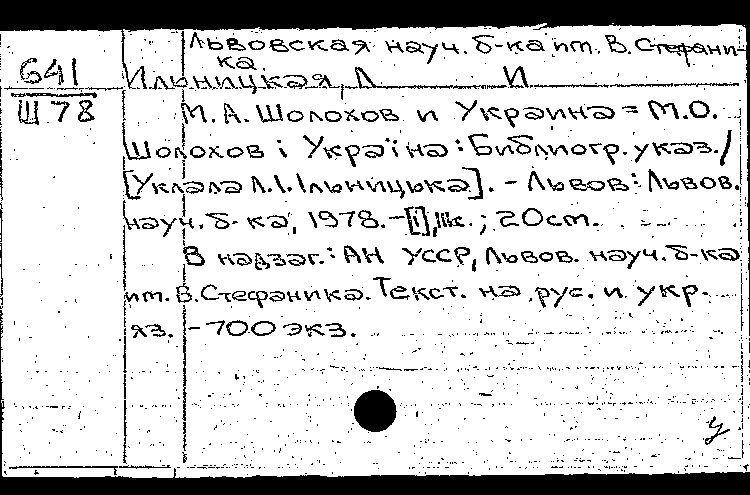 Львовская науч. б-ка им. В. Стефани-
ка
641
Ильницкая, Л И
Ш 78
М. А. Шолохов и Украина = М.О.
Шолохов і Україна : Библиогр. указ. /
[Уклала Л.І. Ільницька]. – Львов : Львов.
науч. б-ка, 1978. – [1], с. ; 20 cm.
В надзаг.: АН УССР, Львов. науч. б-ка
им. В. Стефаника. Текст. на рус. и укр.
яз. – 700 экз.
У